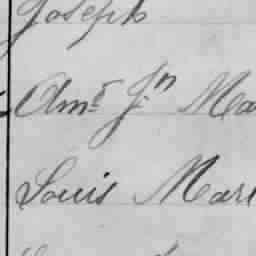 Joseph
Amt Jn Ma
Louis Mar